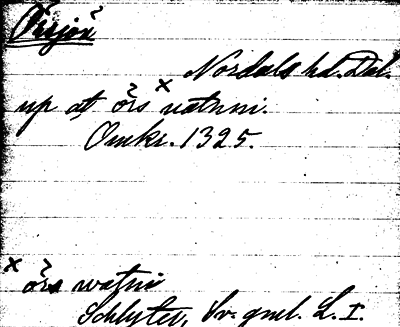 Örsjön
Nordals hd. Dal.
up at örs × uatnni.
Omkr. 1325.
× örs watni
Schlyter, Sv. gml. L. I.